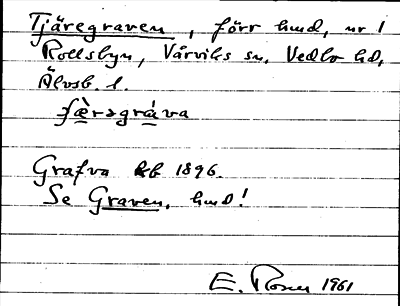 Tjäregraven, förr hmd, nr 1
Rollsbyn, Vårviks sn, Vedbo hd,
Älvsb. l.
Grafva kb 1896.
Se Graven, hmd!
E. Rosen 1961